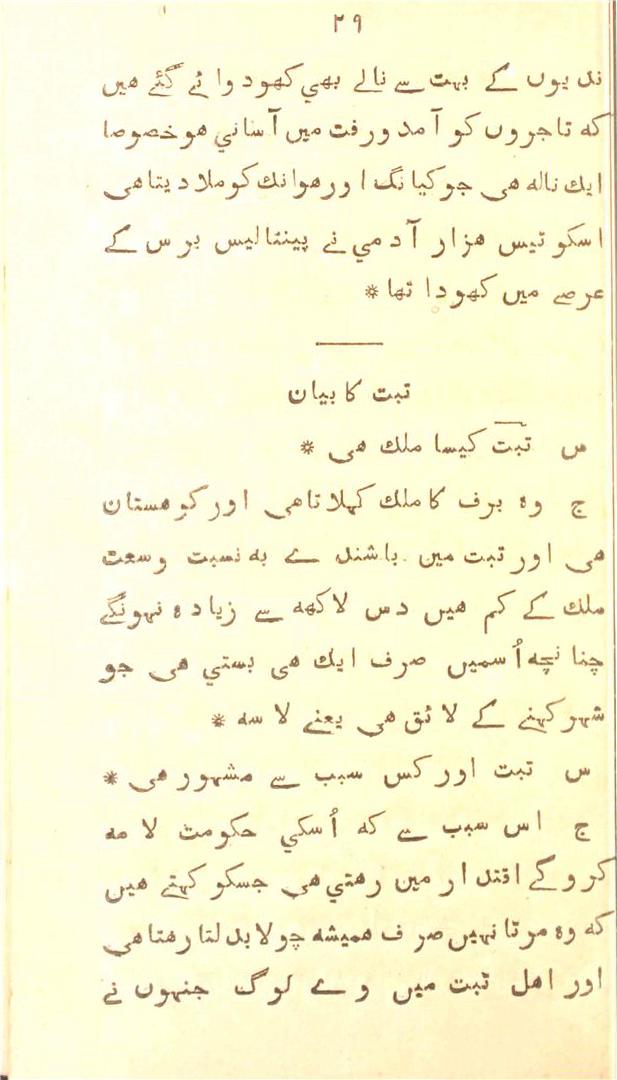 ۲۹
ندیوں کے بہت سے نالے بھي کھودوائے گئے هیں
که تاجروں کو آمدورفت میں آساني هو خصوصا
ایك ناله هی جو کیانگ اور هوانك کو ملا دیتا هی
اسکو تیس هزار آدمي نے پینتالیس برس کے
عرصے میں کھودا تھا *
تبت کا بیان
س تبت کیسا ملك هی *
ج وه برف کا ملك کہلاتا هی اور کوهستان
هی اور تبت میں باشندے به نسبت وسعت
ملك کے کم هیں دس لاکھه سے زیاده نہونگے
چنانچه اُسمیں صرف ایك هی بستي هی جو
شہر کہنے کے لائق هی یعنے لاسه *
س تبت اور کس سبب سے مشہور هی *
ج اس سبب سے که اُسکي حکومت لامه
گرو کے اقتدار مین رهتي هی جسکو کہتے هیں
که وه مرتا نہیں صرف همیشه چولا بدلتا رهتا هی
اور اهل تبت میں وے لوگ جنہوں نے